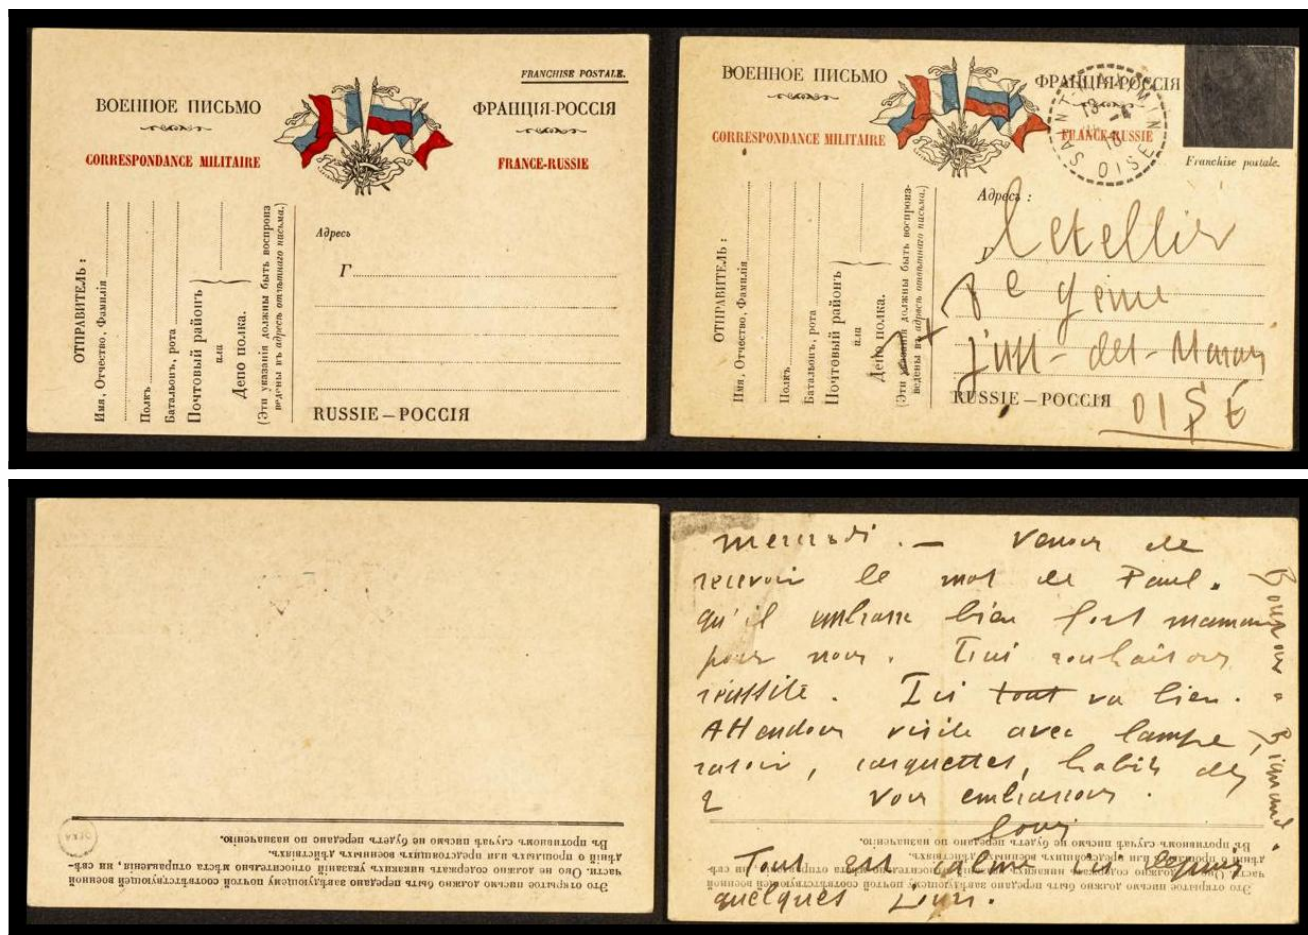 FRANCHISE POSTALE.
ВОЕННОЕ ПИСЬМО
ФРАНЦІЯ-РОССІЯ
CORRESPONDANCE MILITAIRE
FRANCE-RUSSIE
ОТПРАВИТЕЛЬ:
Имя, Отчество, Фамилія
Полкъ
Баталіонъ, рота
Почтовый районъ
или
Депо полка.
(Эти указанія должны быть воспроиз
ведены въ адресѣ отвѣтнаго письма.)
Адресъ
Г
RUSSIE — РОССІЯ
ВОЕННОЕ ПИСЬМО
ФРАНЦІЯ-РОССІЯ
CORRESPONDANCE MILITAIRE
FRANCE-RUSSIE
OISE
Franchise postale.
ОТПРАВИТЕЛЬ:
Имя, Отчество, Фамилія
Полкъ
Баталіонъ, рота
Почтовый районъ
или
Депо полка.
(Эти указанія должны быть воспроиз-
ведены въ адресѣ отвѣтнаго письма.)
Адресъ :
Letellier
génie
des-Marais
RUSSIE — РОССІЯ
OISE
Это открытое письмо должно быть передано завѣдующему почтой соотвѣтствующей военной
части. Оно не должно содержать никакихъ указаній относительно мѣста отправленія, ни свѣ-
дѣній о прошлыхъ или предстоящихъ военныхъ дѣйствіяхъ.
Въ противномъ случаѣ письмо не будетъ передано по назначенію.
mercredi. — Venons de
recevoir le mot de Paul.
qu'il embrasse bien fort maman
pour nous. Lui souhaitons
réussite. Ici tout va bien.
Attendons visite avec lampe,
rasoir, casquettes, habits des
2 Vous embrassons.
Louis
Tout est calme ici depuis
quelques jours.
Bonjour a
Это открытое письмо должно быть передано завѣдующему почтой соотвѣтствующей военной
части. Оно не должно содержать никакихъ указаній относительно мѣста отправленія, ни свѣ-
дѣній о прошлыхъ или предстоящихъ военныхъ дѣйствіяхъ.
Въ противномъ случаѣ письмо не будетъ передано по назначенію.